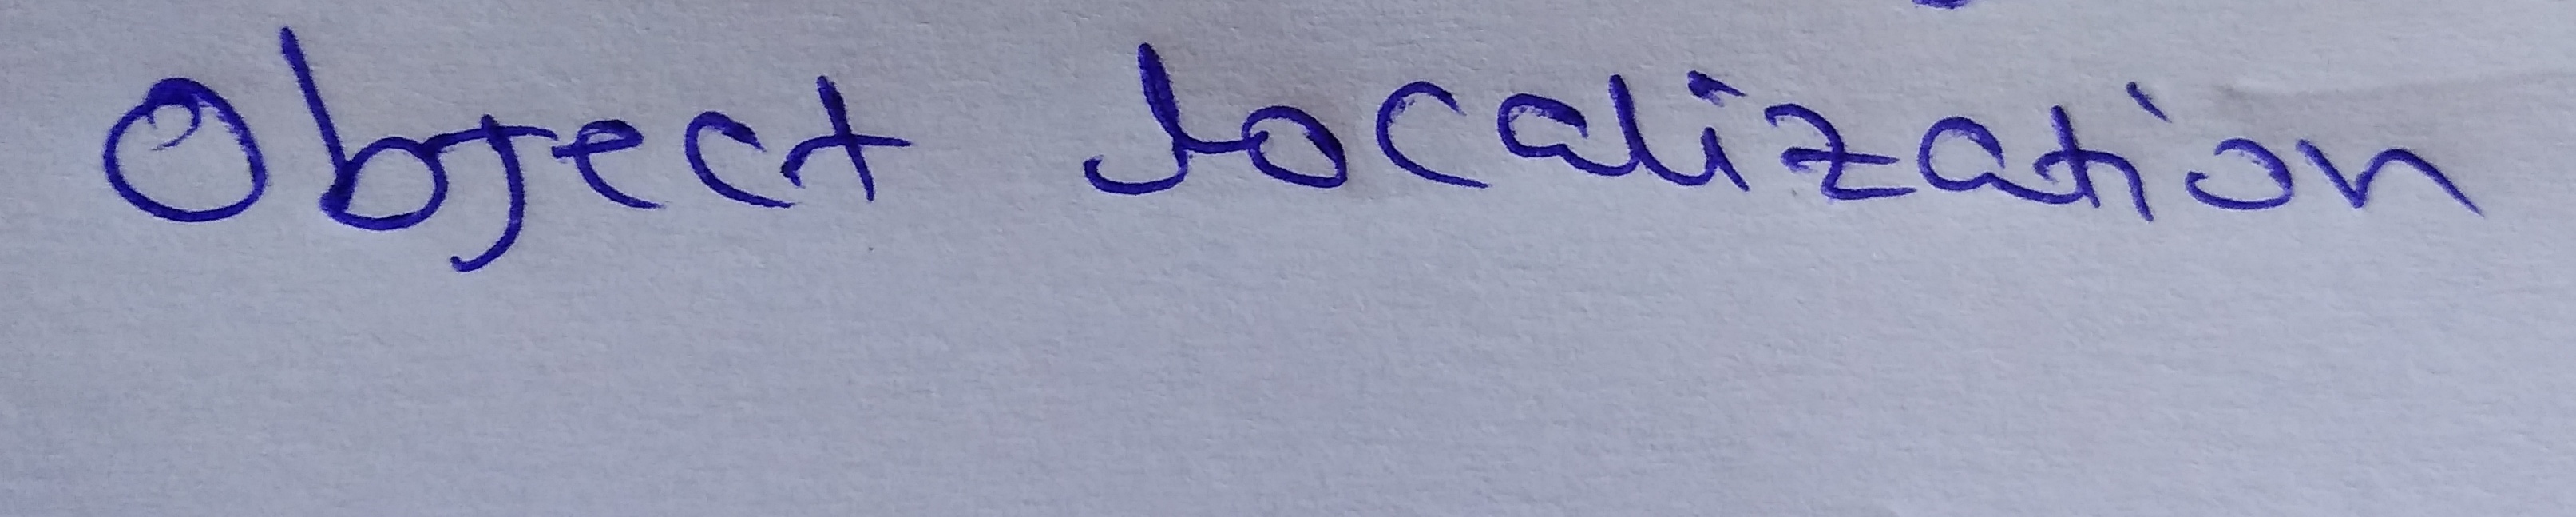 Object localization